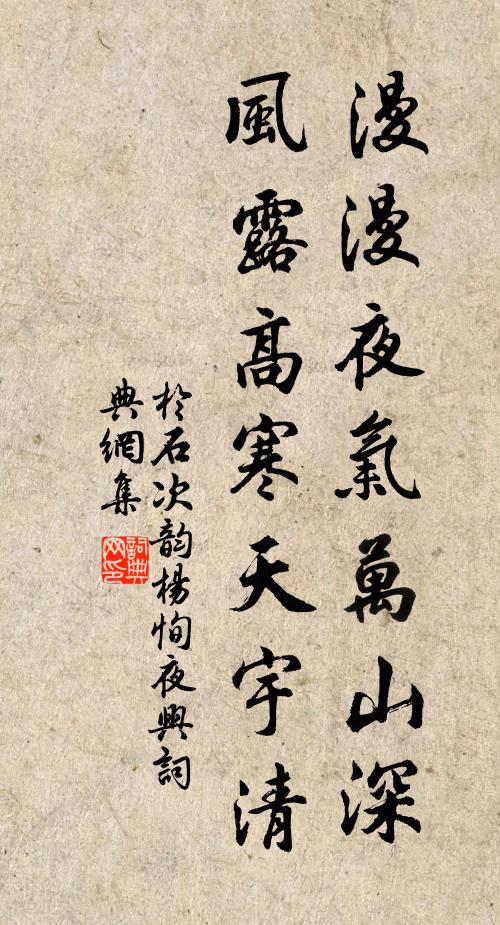 漫漫夜氣萬山深
風露高寒天宇清
於石次韵楊恂夜興詞
典網集
詞典
网印